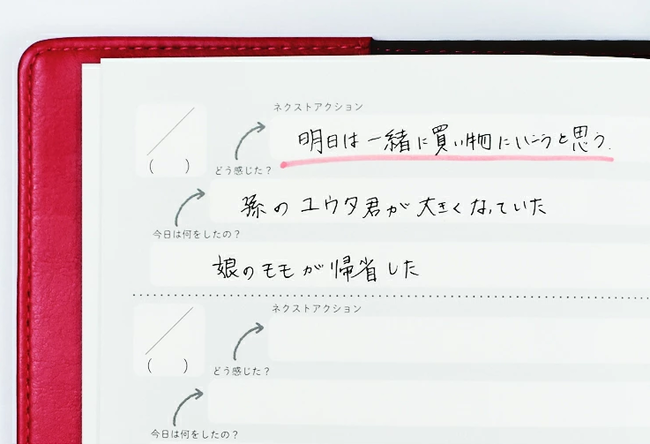 ネクストアクション
明日は一緒に買い物にいこうと思う.
( )
どう感じた?
孫のユウタ君が大きくなっていた
今日は何をしたの?
娘のモモが帰省した
ネクストアクション
( )
どう感じた?
今日は何をしたの?